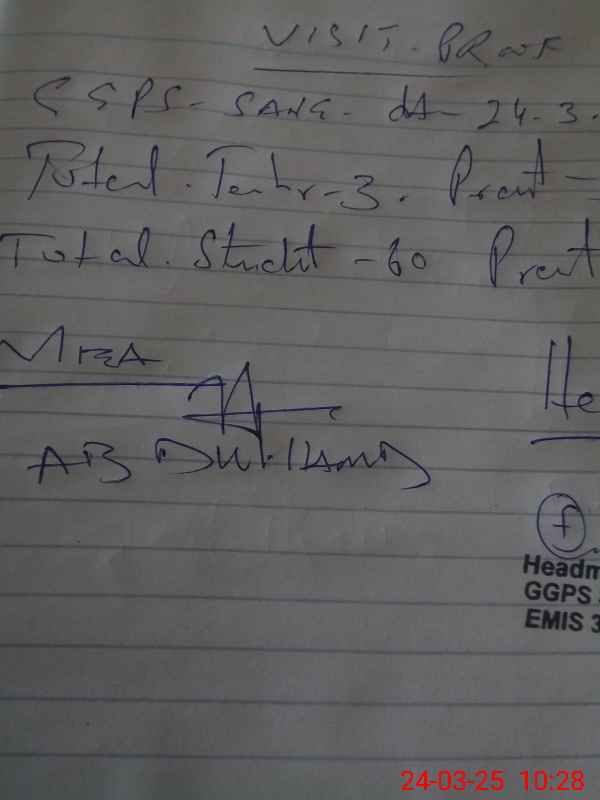 VISIT. PROOF
GGPS - SANG - dt - 24-3.
Total. Teachr - 3. Presnt =
Total. Studnt - 60 Presnt
MEA
He
ABDUL HAMD
f
Headm
GGPS
EMIS 3
24-03-25 10:28